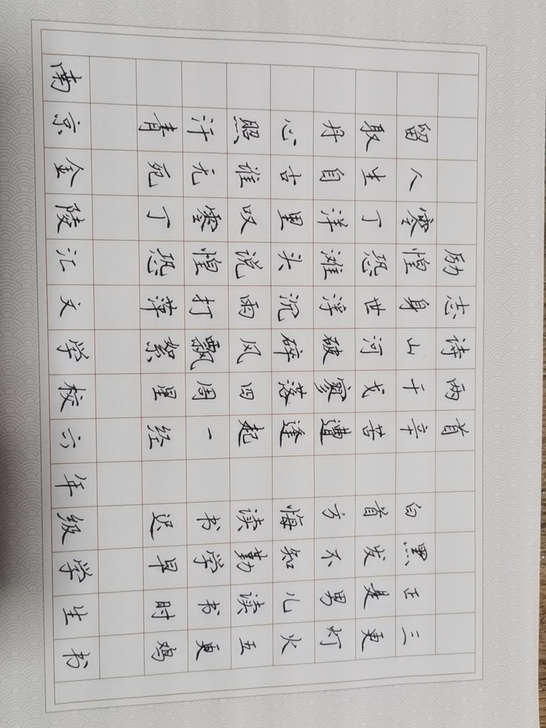 励志诗两首
三更灯火五更鸡
正是男儿读书时
黑发不知勤学早
白首方悔读书迟
辛苦遭逢起一经
干戈寥落四周星
山河破碎风飘絮
身世浮沉雨打萍
惶恐滩头说惶恐
零丁洋里叹零丁
人生自古谁无死
留取丹心照汗青
南京金陵汇文学校六年级学生书